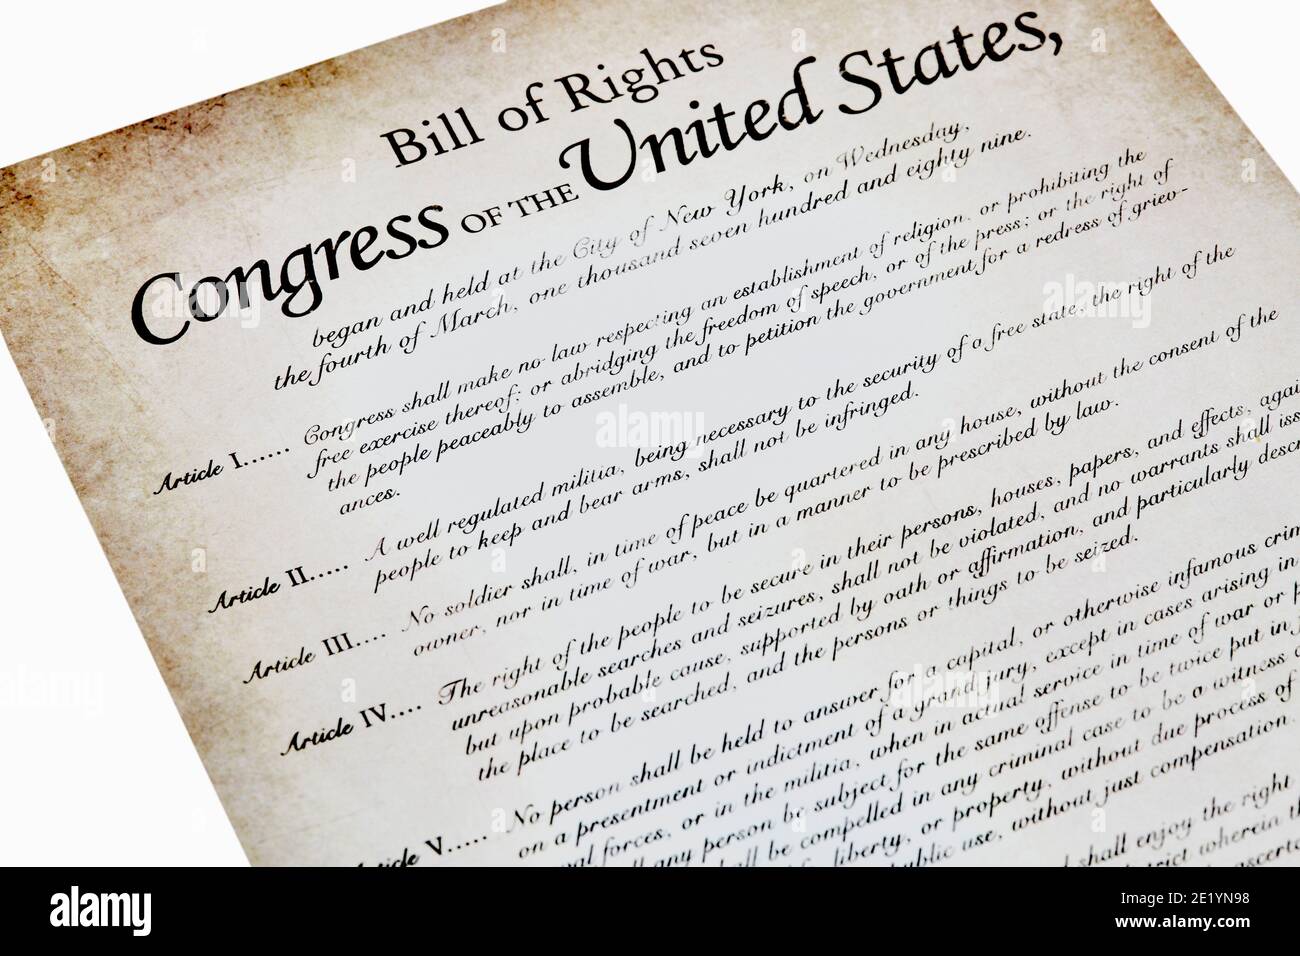 Bill of Rights
Congress OF THE United States,
began and held at the City of New York, on Wednesday,
the fourth of March, one thousand seven hundred and eighty nine.
Article I...... Congress shall make no law respecting an establishment of religion, or prohibiting the
free exercise thereof; or abridging the freedom of speech, or of the press; or the right of
the people peaceably to assemble, and to petition the government for a redress of griev-
ances.
Article II..... A well regulated militia, being necessary to the security of a free state, the right of the
people to keep and bear arms, shall not be infringed.
Article III.... No soldier shall, in time of peace be quartered in any house, without the consent of the
owner, nor in time of war, but in a manner to be prescribed by law.
Article IV.... The right of the people to be secure in their persons, houses, papers, and effects, agai
unreasonable searches and seizures, shall not be violated, and no warrants shall iss
but upon probable cause, supported by oath or affirmation, and particularly descr
the place to be searched, and the persons or things to be seized.
Article V..... No person shall be held to answer for a capital, or otherwise infamous crim
on a presentment or indictment of a grand jury, except in cases arising in
forces, or in the militia, when in actual service in time of war or p
any person be subject for the same offense to be twice put in j
be compelled in any criminal case to be a witness
liberty, or property, without due process of
public use, without just compensation.
shall enjoy the right
wherein th
ascerta
alamy
Image ID: 2E1YN98
www.alamy.com